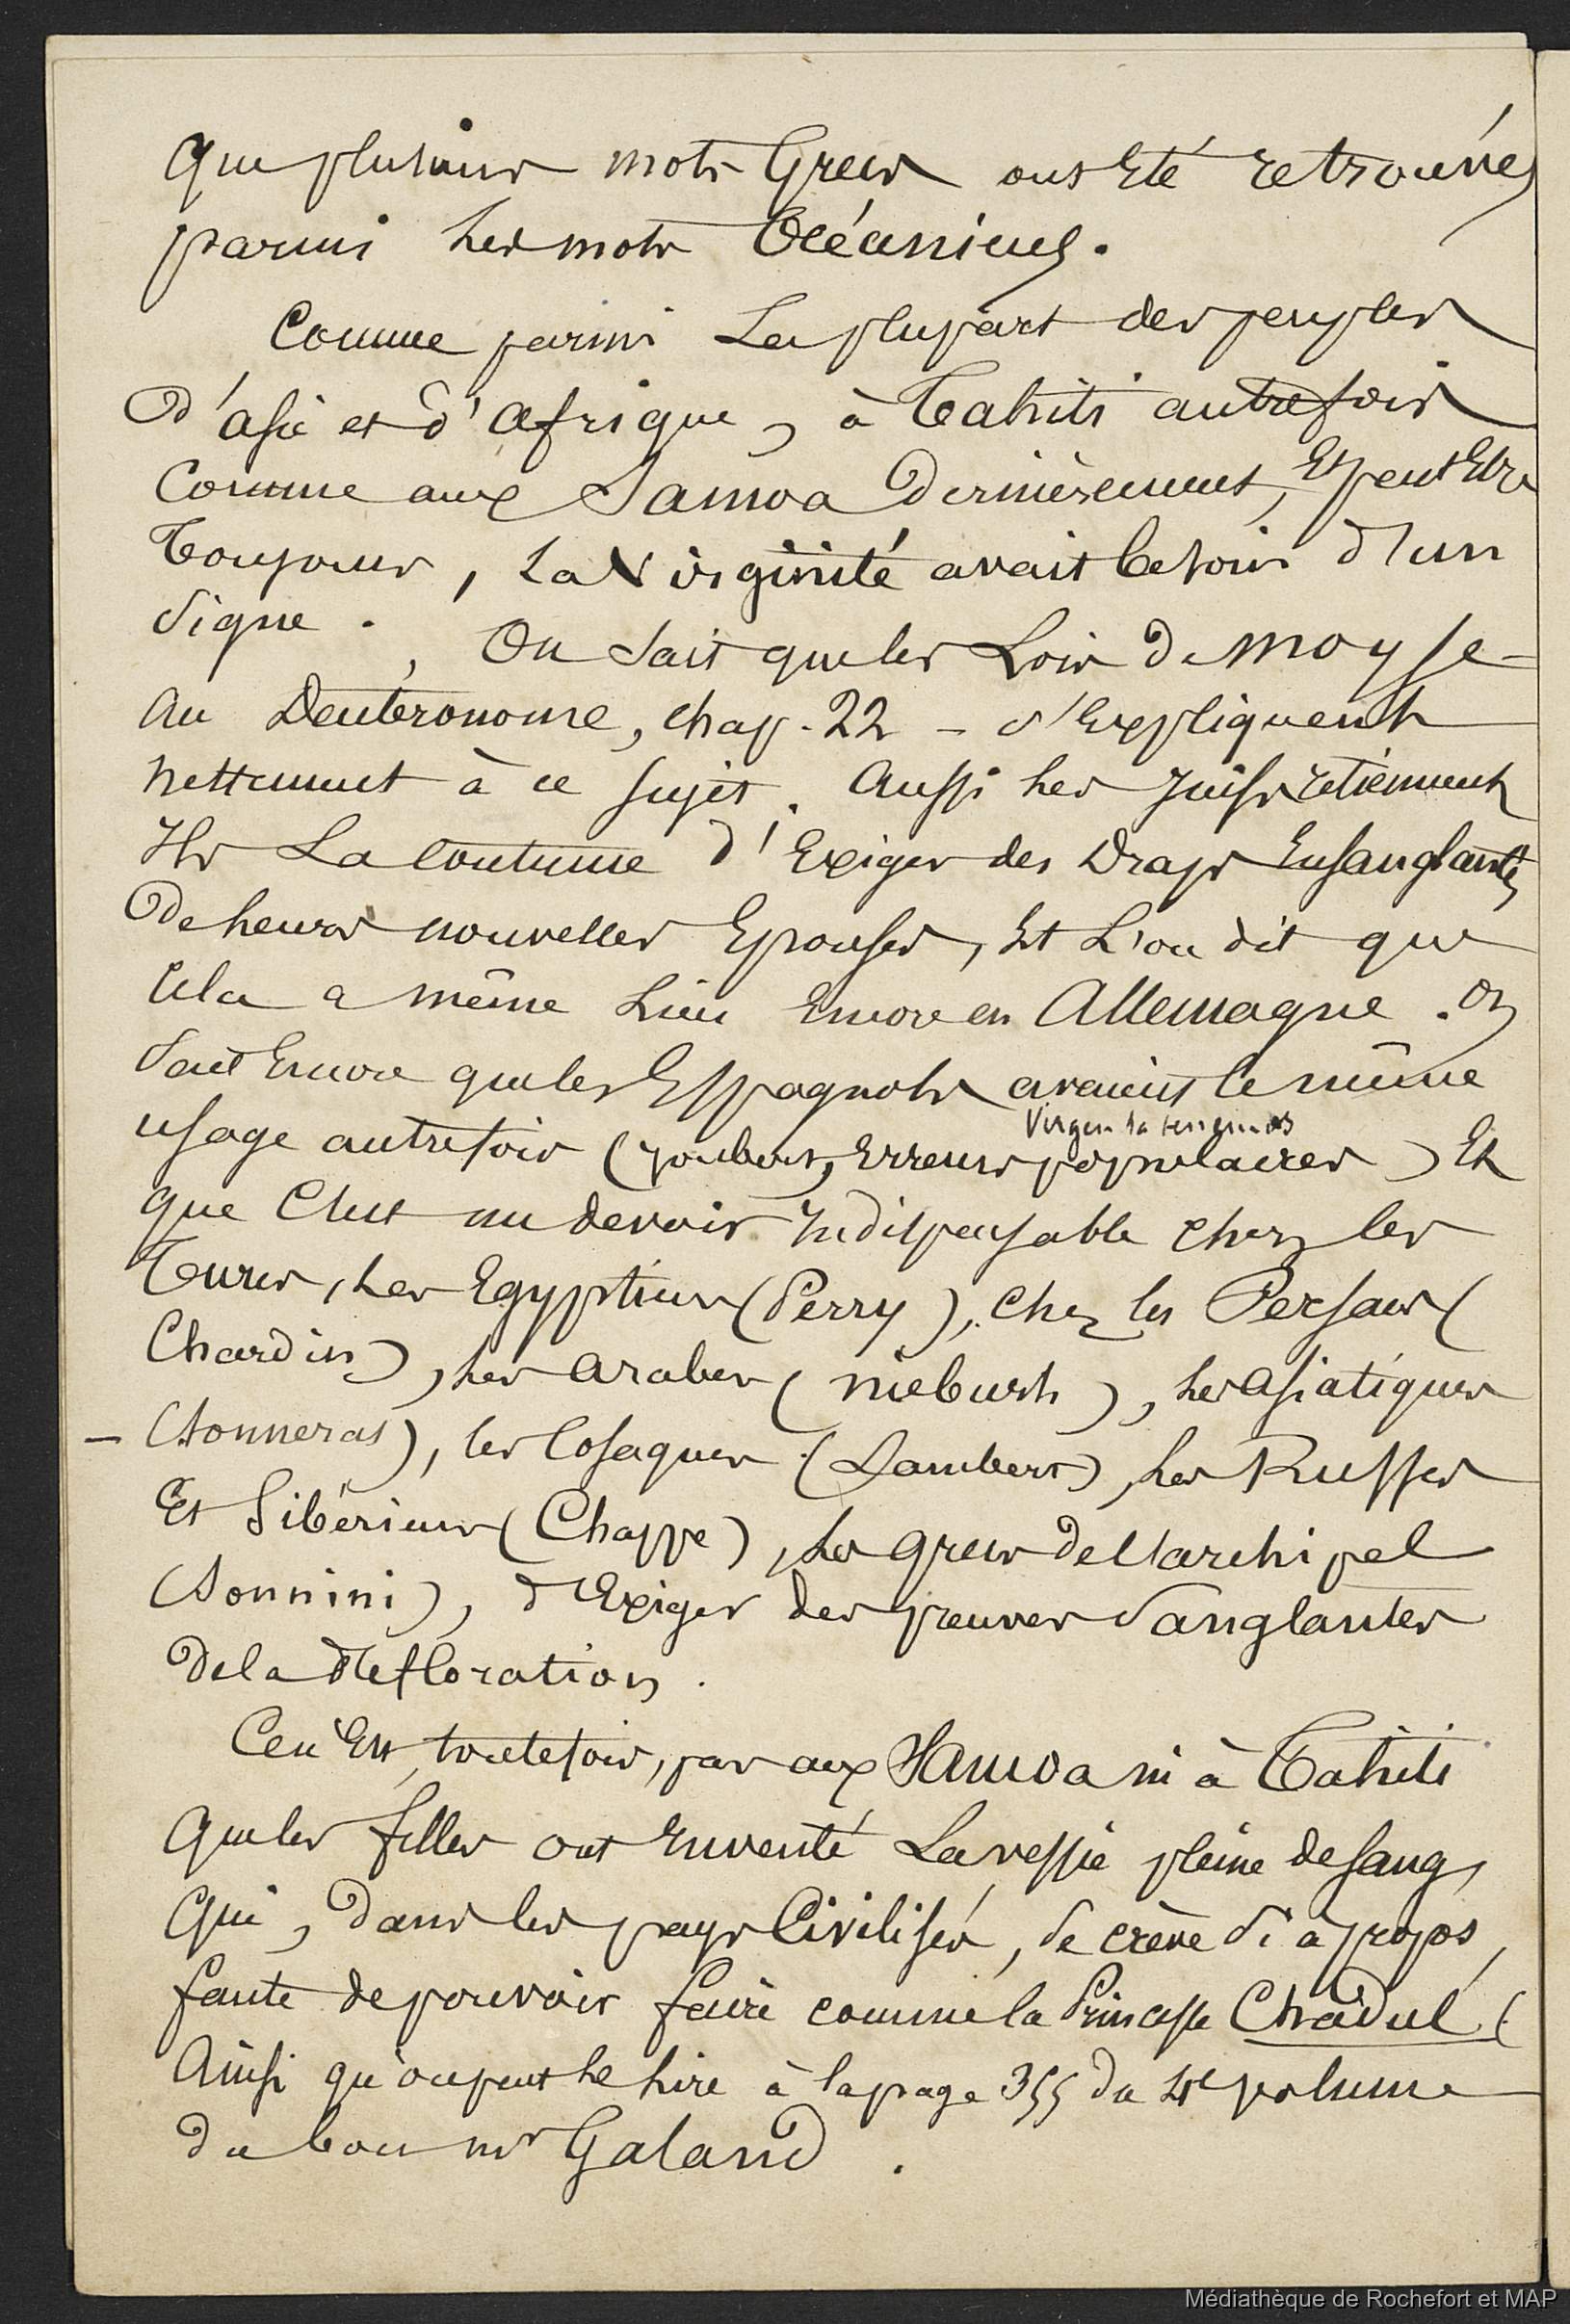 que plusieurs mots Grecs ont Eté retrouvés
parmi Les mots Océaniens.
Comme parmi La plupart des peuples
D'asie et d'afrique, à Tahiti autrefois
Comme aux Samoa Dernièrement, Et peut Etre
Toujours, La Virginité avait besoin d'un
Signe. On Sait que les Lois de moyse
au Deutéronome, chap. 22 - s'Expliquent
nettement à ce sujet. Aussi Les Juifs retiennent
Ils La coutume d'Exiger des Draps Ensanglantés
De Leurs nouvelles Epouses, Et L'on dit que
Cela a même Lieu Encore en Allemagne. On
Sait Encore que les Espagnols avaient le même
Virgen la tenemos
usage autrefois (Joubert, Erreurs populaires) Et
que C'est un devoir Indispensable chez les
Turcs, Les Egyptiens (Perry), chez les Persans (
Chardin), Les arabes (niebursh), Les asiatiques
- (Sonnerat), les Cosaques (Lambert), Les Russes
Et Sibériens (Chappe), Les grecs de l'archipel
(Sonnini), d'Exiger des preuves Sanglantes
de la défloration.
Ce n'Est, toutefois, pas aux Samoa ni à Tahiti
que les filles ont Inventé La vessie pleine de sang,
qui, dans les pays Civilisés, se crève si à propos,
faute de pouvoir faire comme la Princesse Chadul (
Ainsi qu'on peut Le Lire à la page 355 du 4e volume
du bon mr Galand.
Médiathèque de Rochefort et MAP